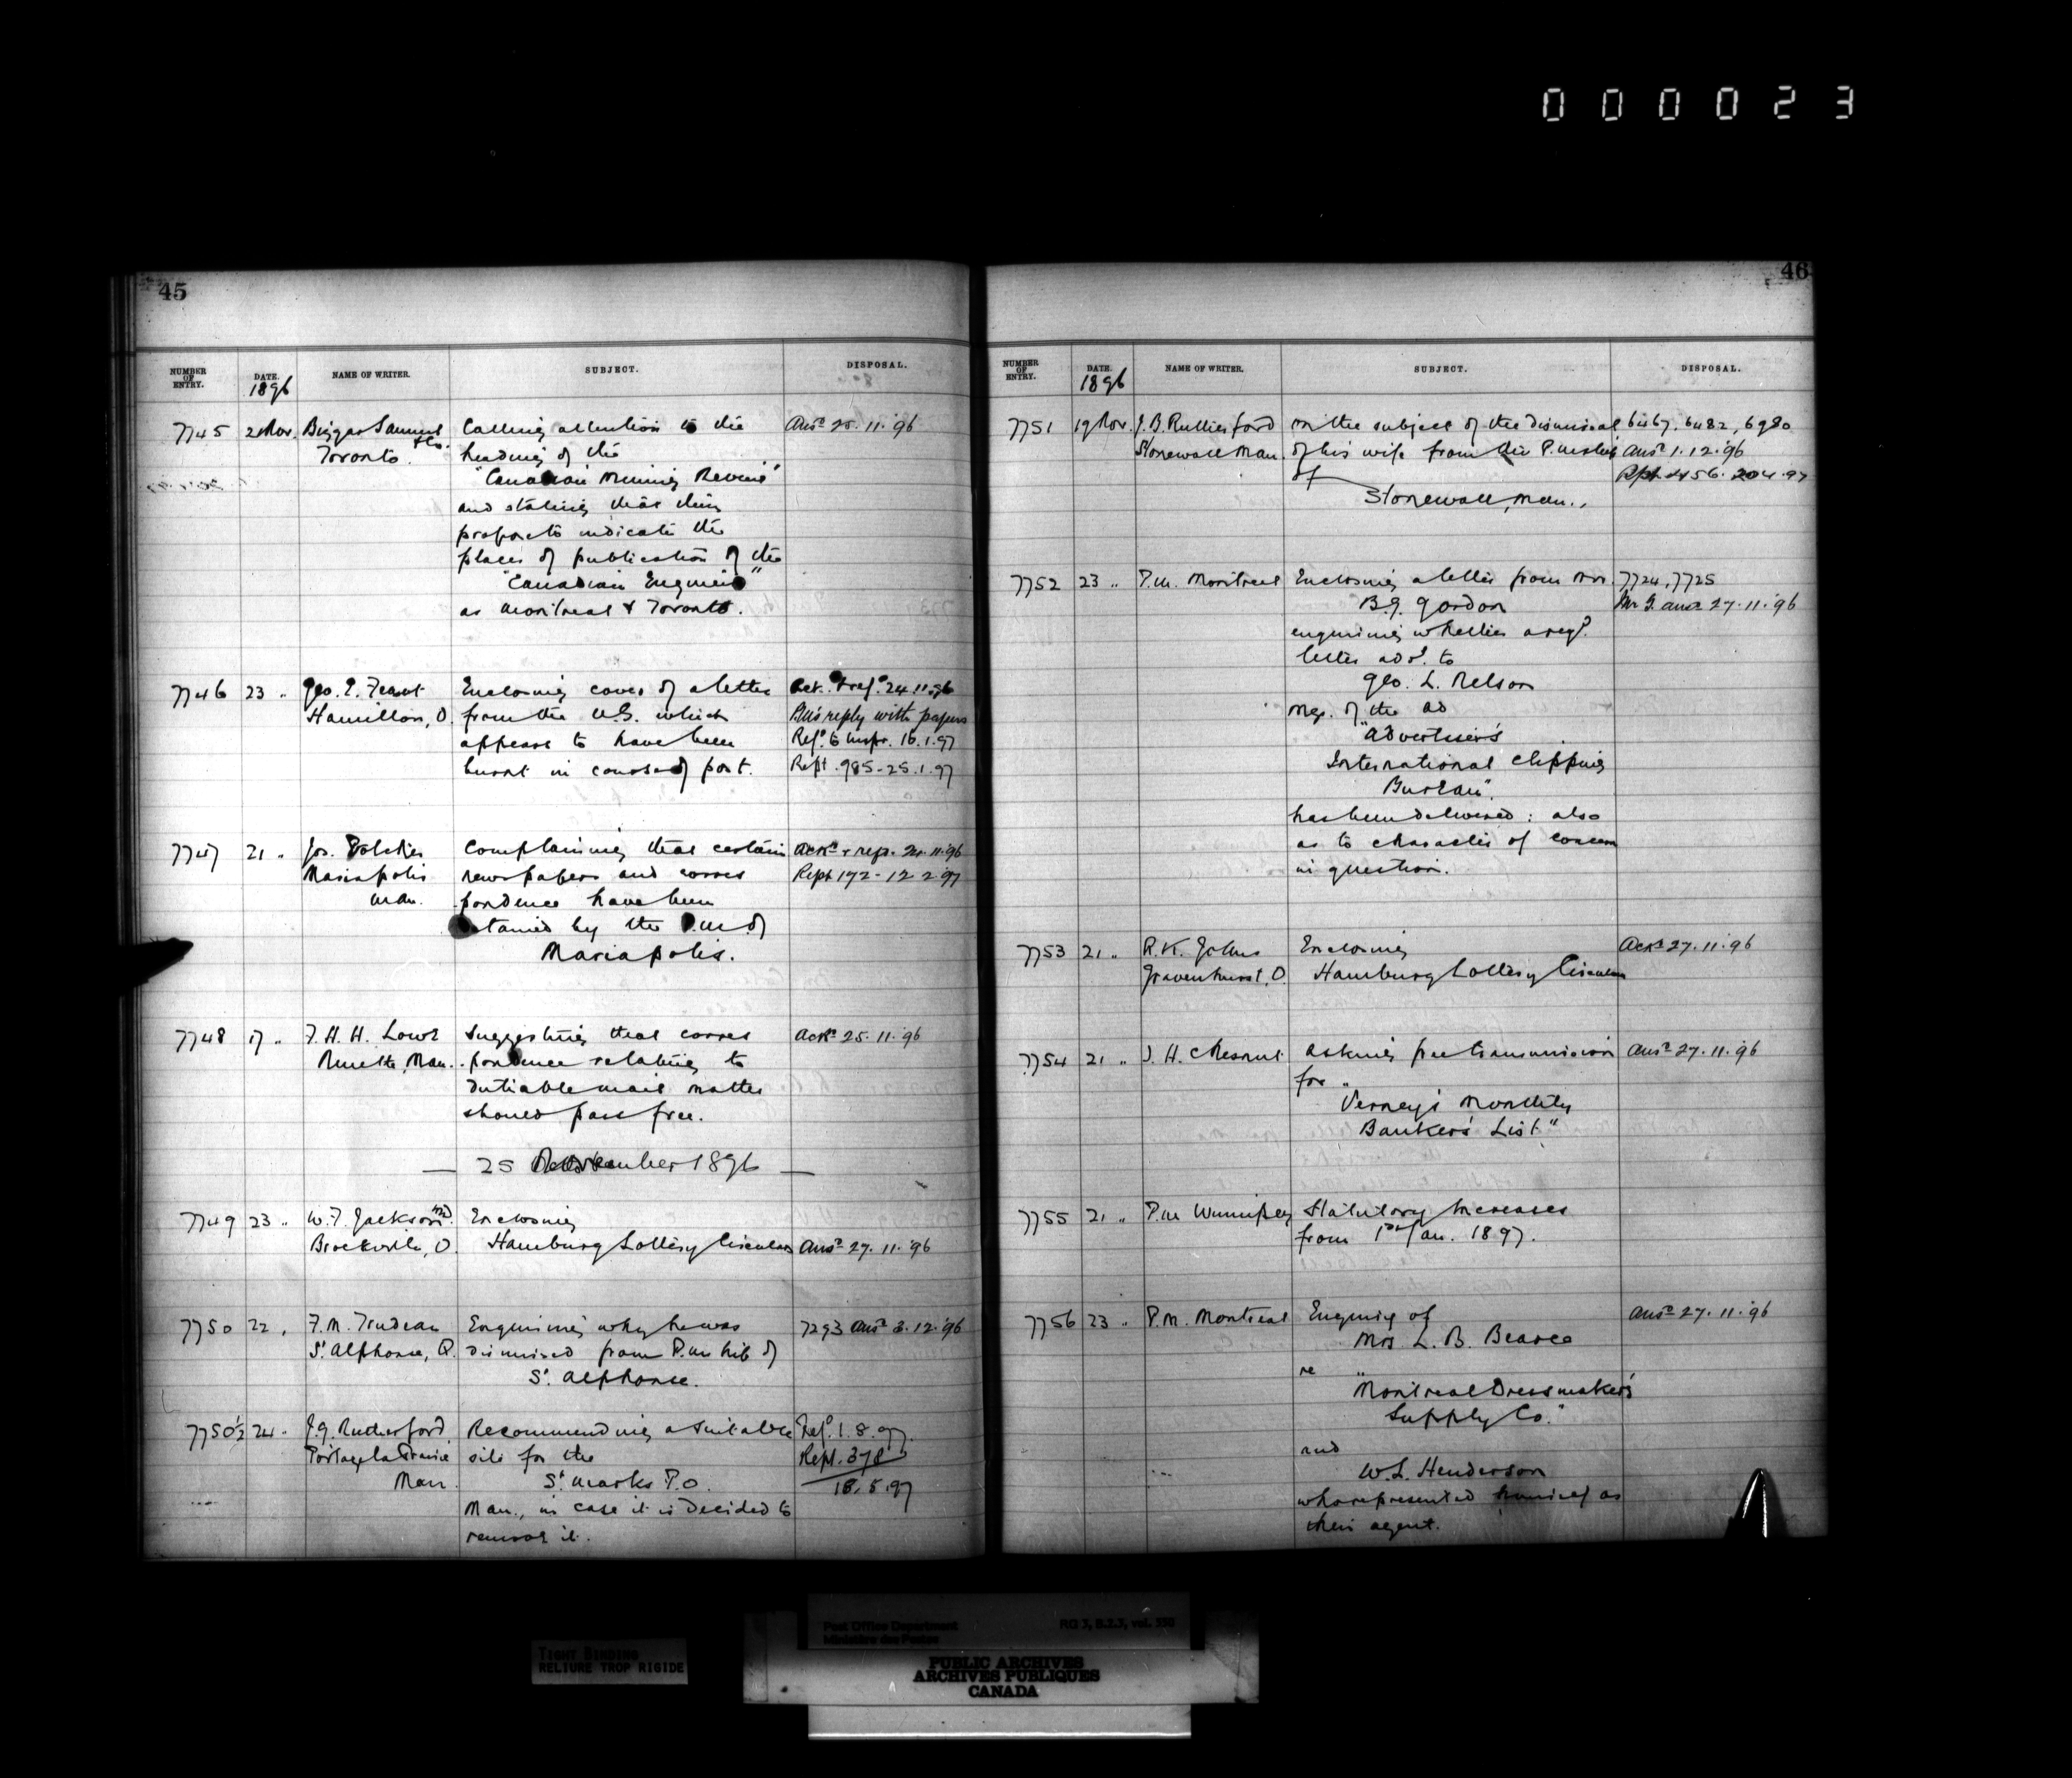 000023
45
NUMBER OF ENTRY. DATE. NAME OF WRITER. SUBJECT. DISPOSAL.
1896
7745 21 Nov. Biggar Samuel & Co. Calling attention to the Ansd 25.11.'96
Toronto. heading of the
"Canadian Mining Review"
and stating that their
prospects indicate the
places of publication of the
"Canadian Engineer"
as Montreal & Toronto.
7746 23 " Geo. E. Enclosing cover of a letter Ack. & ref. 24.11.96
Hamilton, O. from the U.S. which P.M's reply with papers
appears to have been Refd. to Inspr. 16.1.97
burnt in course of post. Rept. 985-25.1.97
7747 21 " Jos. Complaining that certain Ackd & rep. 24.11.96
Mariapolis newspapers and corres Rept 172-12.2.97
Man. pondence have been
detained by the P.M. of
Mariapolis.
7748 17 " F. H. H. Lowe Suggesting that corres Ackd 25.11.'96
Ninette, Man. pondence relating to
dutiable mail matter
should pass free.
— 25 November 1896 —
7749 23 " W. F. Jackson M.D. Enclosing
Brockville, O. Hamburg Lottery Circulars Ansd 27.11.'96
7750 22 " F. M. Trudeau Enquiring why he was 7293 Ansd 3.12.'96
St. Alphonse, Q. dismissed from P.M.ship of
St. Alphonse.
7750½ 24 " J. G. Rutherford, Recommending a suitable Refd. 1.8.97.
Portage la Prairie site for the Rept. 378
Man. St. Marks P.O. 18.5.97
Man., in case it is decided to
remove it.
46
NUMBER OF ENTRY. DATE. NAME OF WRITER. SUBJECT. DISPOSAL.
1896
7751 19 Nov. J. B. Rutherford on the subject of the dismissal 6467, 6482, 6980
Stonewall Man. of his wife from the P.M.ship Ansd 1.12.'96
of Rept 4456. 20.4.97
Stonewall, Man.,
7752 23 " P.M. Montreal Enclosing a letter from Mr. 7724, 7725
B. G. Gordon Mr G. ansd 27.11.'96
enquiring whether a regd.
letter addd. to
Geo. L. Nelson
Mgr. of the ad
"Advertiser's
International Clipping
Bureau".
has been delivered: also
as to character of concern
in question.
7753 21 " R. K. Johns Enclosing Ackd 27.11.'96
Gravenhurst, O. Hamburg Lottery Circulars
7754 21 " J. H. Chesnut asking free transmission Ansd 27.11.'96
for "
Verney's Monthly
Banker's List."
7755 21 " P.M. Winnipeg Statutory Increases
from 1st Jan. 1897.
7756 23 " P.M. Montreal Enquiry of Ansd 27.11.'96
Mrs L. B. Bearce
re
"Montreal Dressmaker's
Supply Co."
and
W. L. Henderson
who represented himself as
their agent.
Post Office Department RG 3, B.2.3, vol. 550
Ministère des Postes
TIGHT BINDING
RELIURE TROP RIGIDE
PUBLIC ARCHIVES
ARCHIVES PUBLIQUES
CANADA